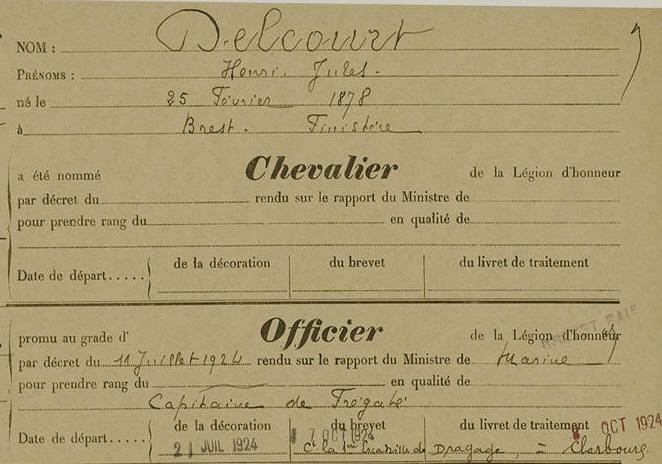 NOM : Delcourt
PRÉNOMS : Henri. Jules.
né le 25 Février 1878
à Brest. Finistère
a été nommé Chevalier de la Légion d'honneur
par décret du rendu sur le rapport du Ministre de
pour prendre rang du en qualité de
Date de départ..... de la décoration du brevet du livret de traitement
promu au grade d' Officier de la Légion d'honneur
par décret du 11 Juillet 1924 rendu sur le rapport du Ministre de Marine
pour prendre rang du en qualité de
Capitaine de Frégate
Date de départ..... de la décoration du brevet du livret de traitement
21 JUIL 1924 7 OCT 1924 OCT 1924
Ct la 1ère Escadrille de Dragage, à Cherbourg.